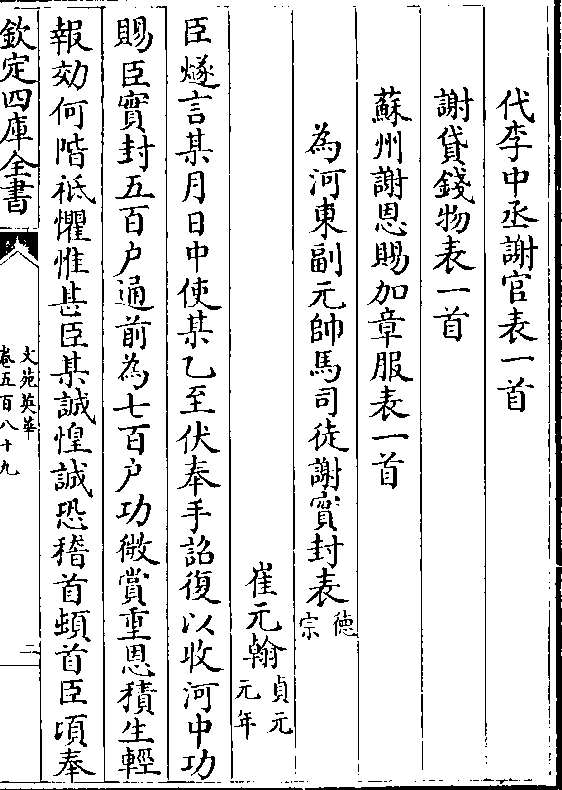 代李中丞謝官表一首
謝貸錢物表一首
蘇州謝恩賜加章服表一首
為河東副元帥馬司徒謝實封表德宗
崔元翰貞元元年
臣燧言某月日中使某乙至伏奉手詔復以收河中功
賜臣實封五百户通前為七百户功微賞重恩積生輕
報效何階祗懼惟甚臣某誠惶誠恐稽首頓首臣頃奉
欽定四庫全書
文苑英華
卷五百八十九
二